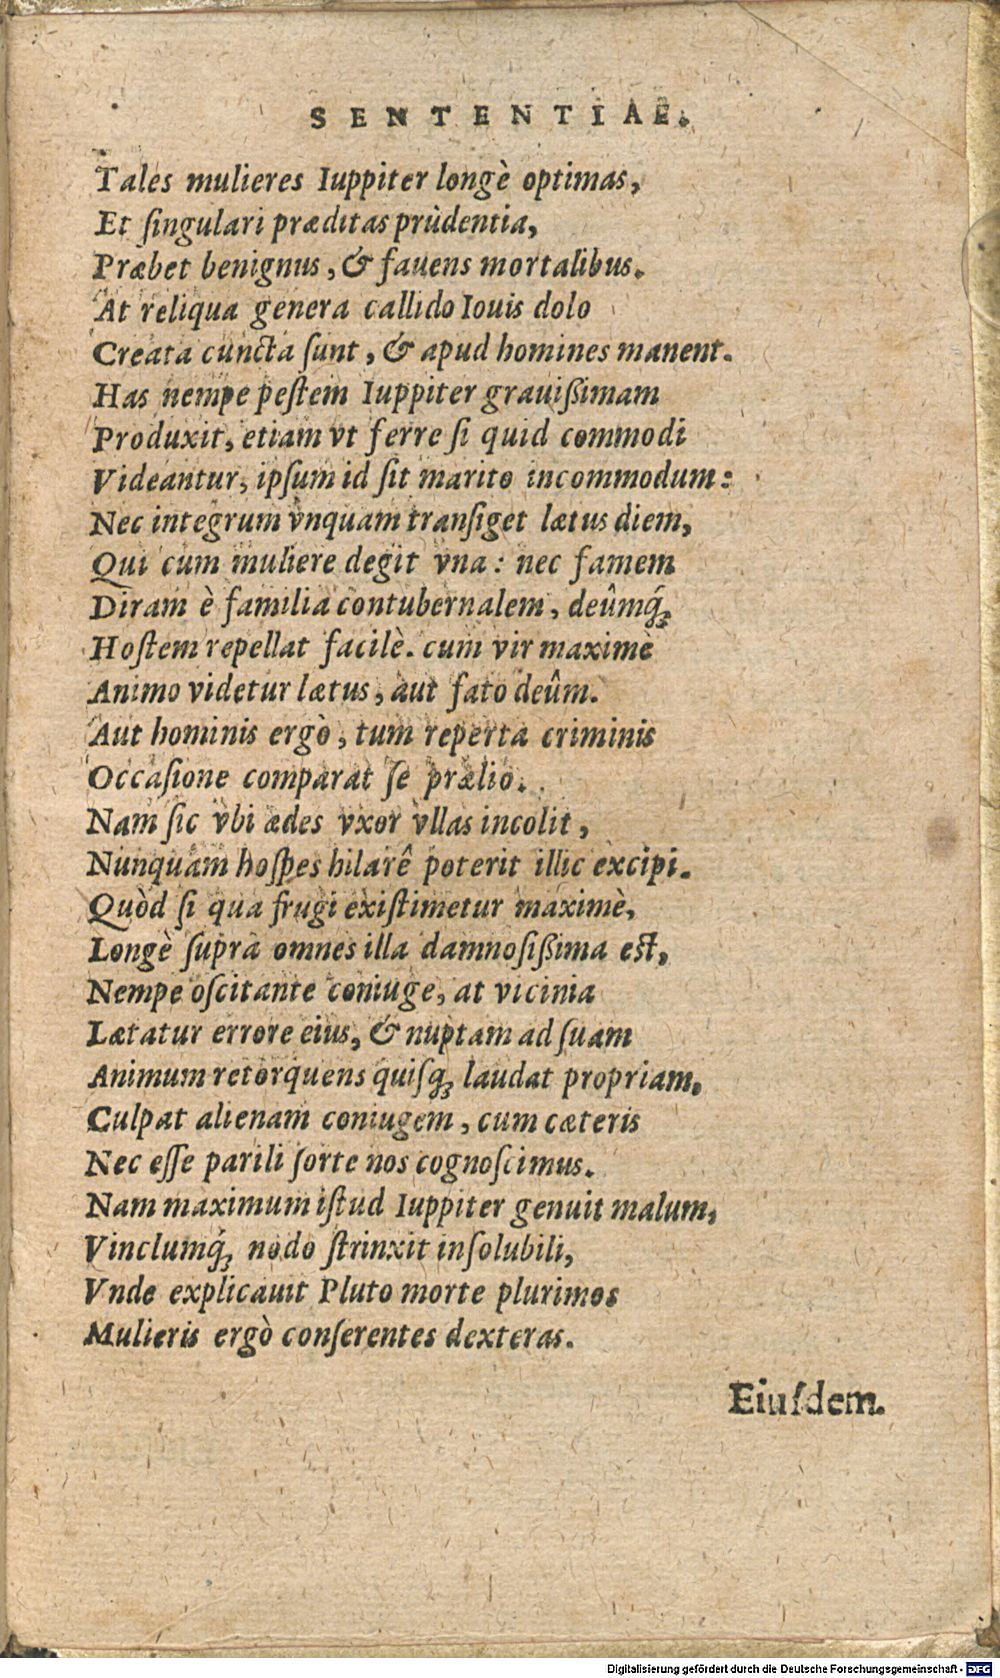 SENTENTIAE.
Tales mulieres Iuppiter longè optimas,
Et ſingulari præditas prùdentia,
Præbet benignus, & fauens mortalibus.
At reliqua genera callido Iouis dolo
Creata cuncta ſunt, & apud homines manent.
Has nempe peſtem Iuppiter grauißimam
Produxit, etiam vt ferre ſi quid commodi
Videantur, ipſum id ſit marito incommodum:
Nec integrum vnquam tranſiget lætus diem,
Qui cum muliere degit vna: nec famem
Diram è familia contubernalem, deûmq́ꝫ
Hoſtem repellat facilè. cum vir maximè
Animo videtur lætus, aut fato deûm.
Aut hominis ergò, tum reperta criminis
Occaſione comparat ſe prælio.
Nam ſic vbi ædes vxor vllas incolit,
Nunquam hoſpes hilarê poterit illic excipi.
Quòd ſi qua frugi exiſtimetur maximè,
Longè ſupra omnes illa damnoſißima eſt,
Nempe oſcitante coniuge, at vicinia
Lætatur errore eius, & nuptam ad ſuam
Animum retorquens quiſqꝫ laudat propriam.
Culpat alienam coniugem, cum cæteris
Nec eſſe parili ſorte nos cognoſcimus.
Nam maximum iſtud Iuppiter genuit malum,
Vinclumq́ꝫ nodo ſtrinxit inſolubili,
Vnde explicauit Pluto morte plurimos
Mulieris ergò conſerentes dexteras.
Eiuſdem.
Digitalisierung gefördert durch die Deutsche Forschungsgemeinschaft - DFG